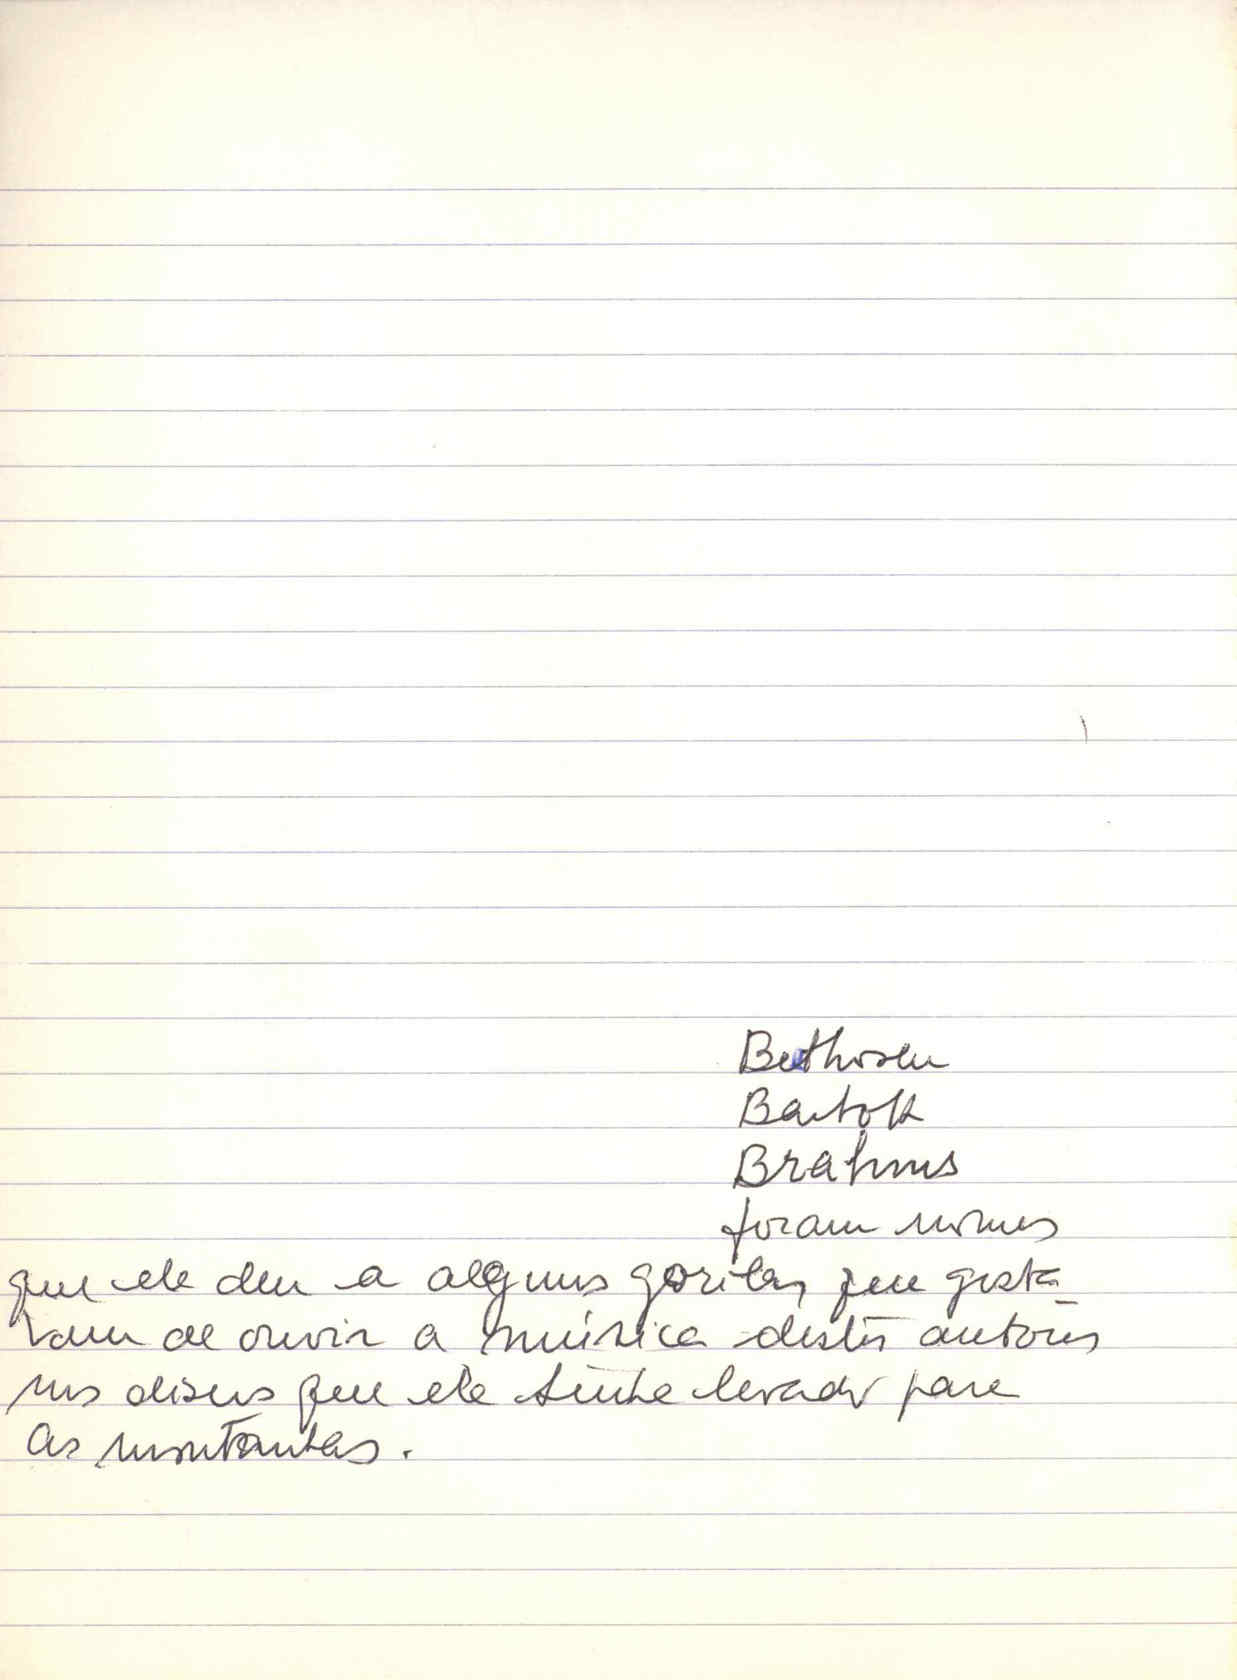 Bethoven
Bartok
Brahms
foram nomes
que ele deu a alguns gorilas que gosta
vam de ouvir a música destes autores
nos discos que ele tinha levado para
as montanhas.